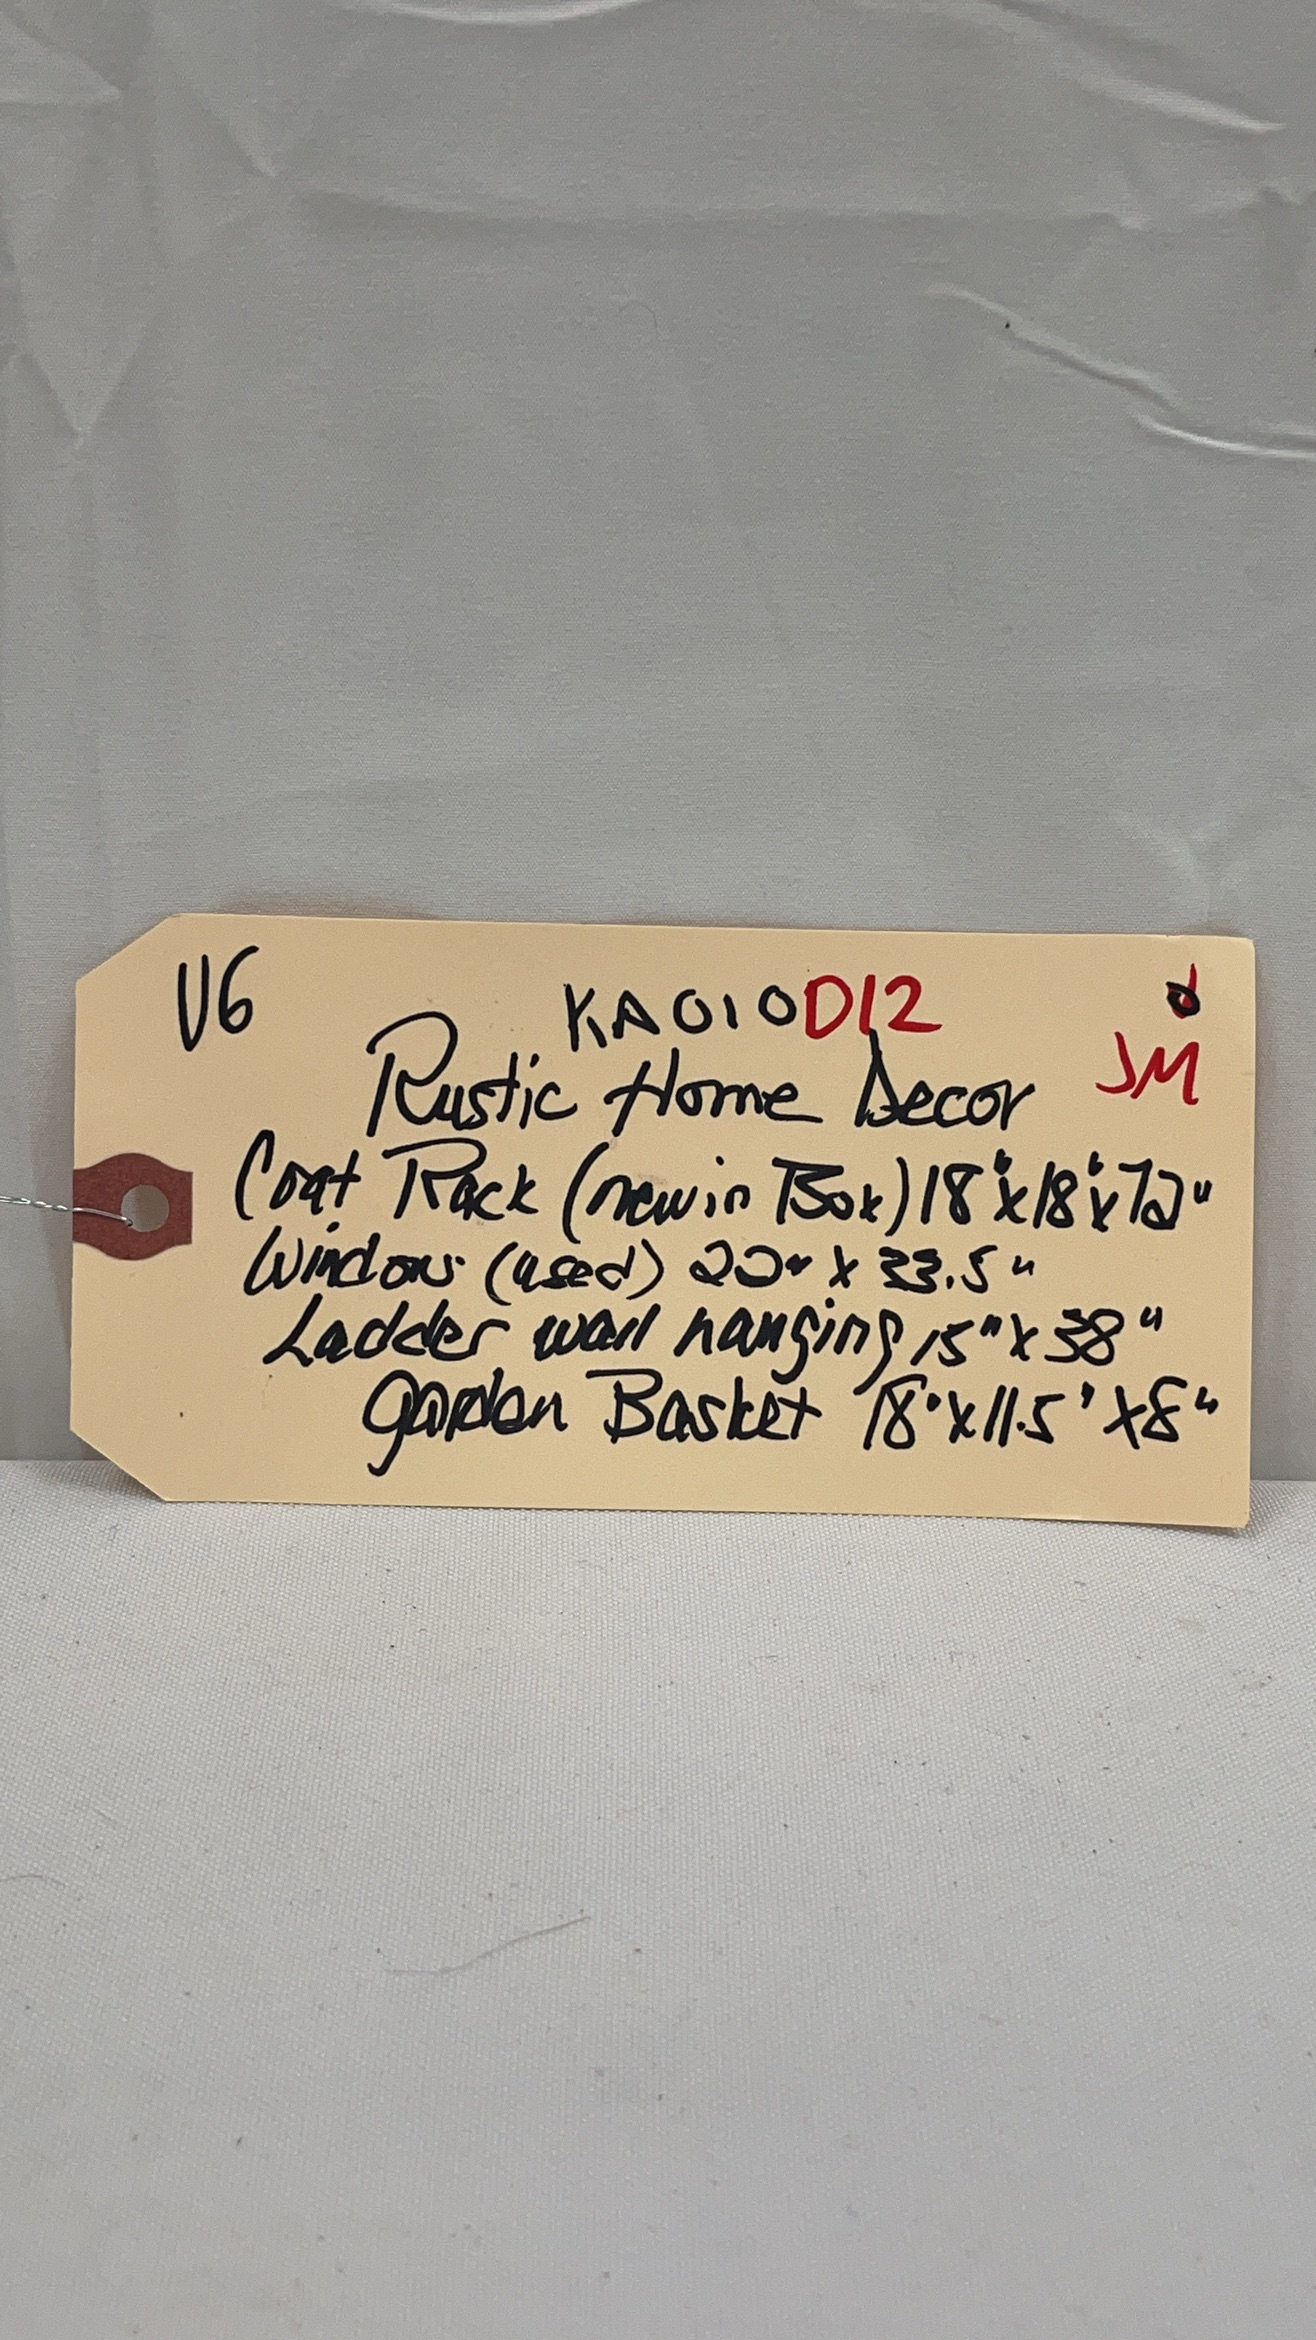 V6 KA010D12
JM
Rustic Home Decor
Coat Rack (new in Box) 18"x18"x72"
Window (used) 22" x 33.5"
Ladder wall hanging 15" x 38"
Garden Basket 18" x 11.5" x 8"